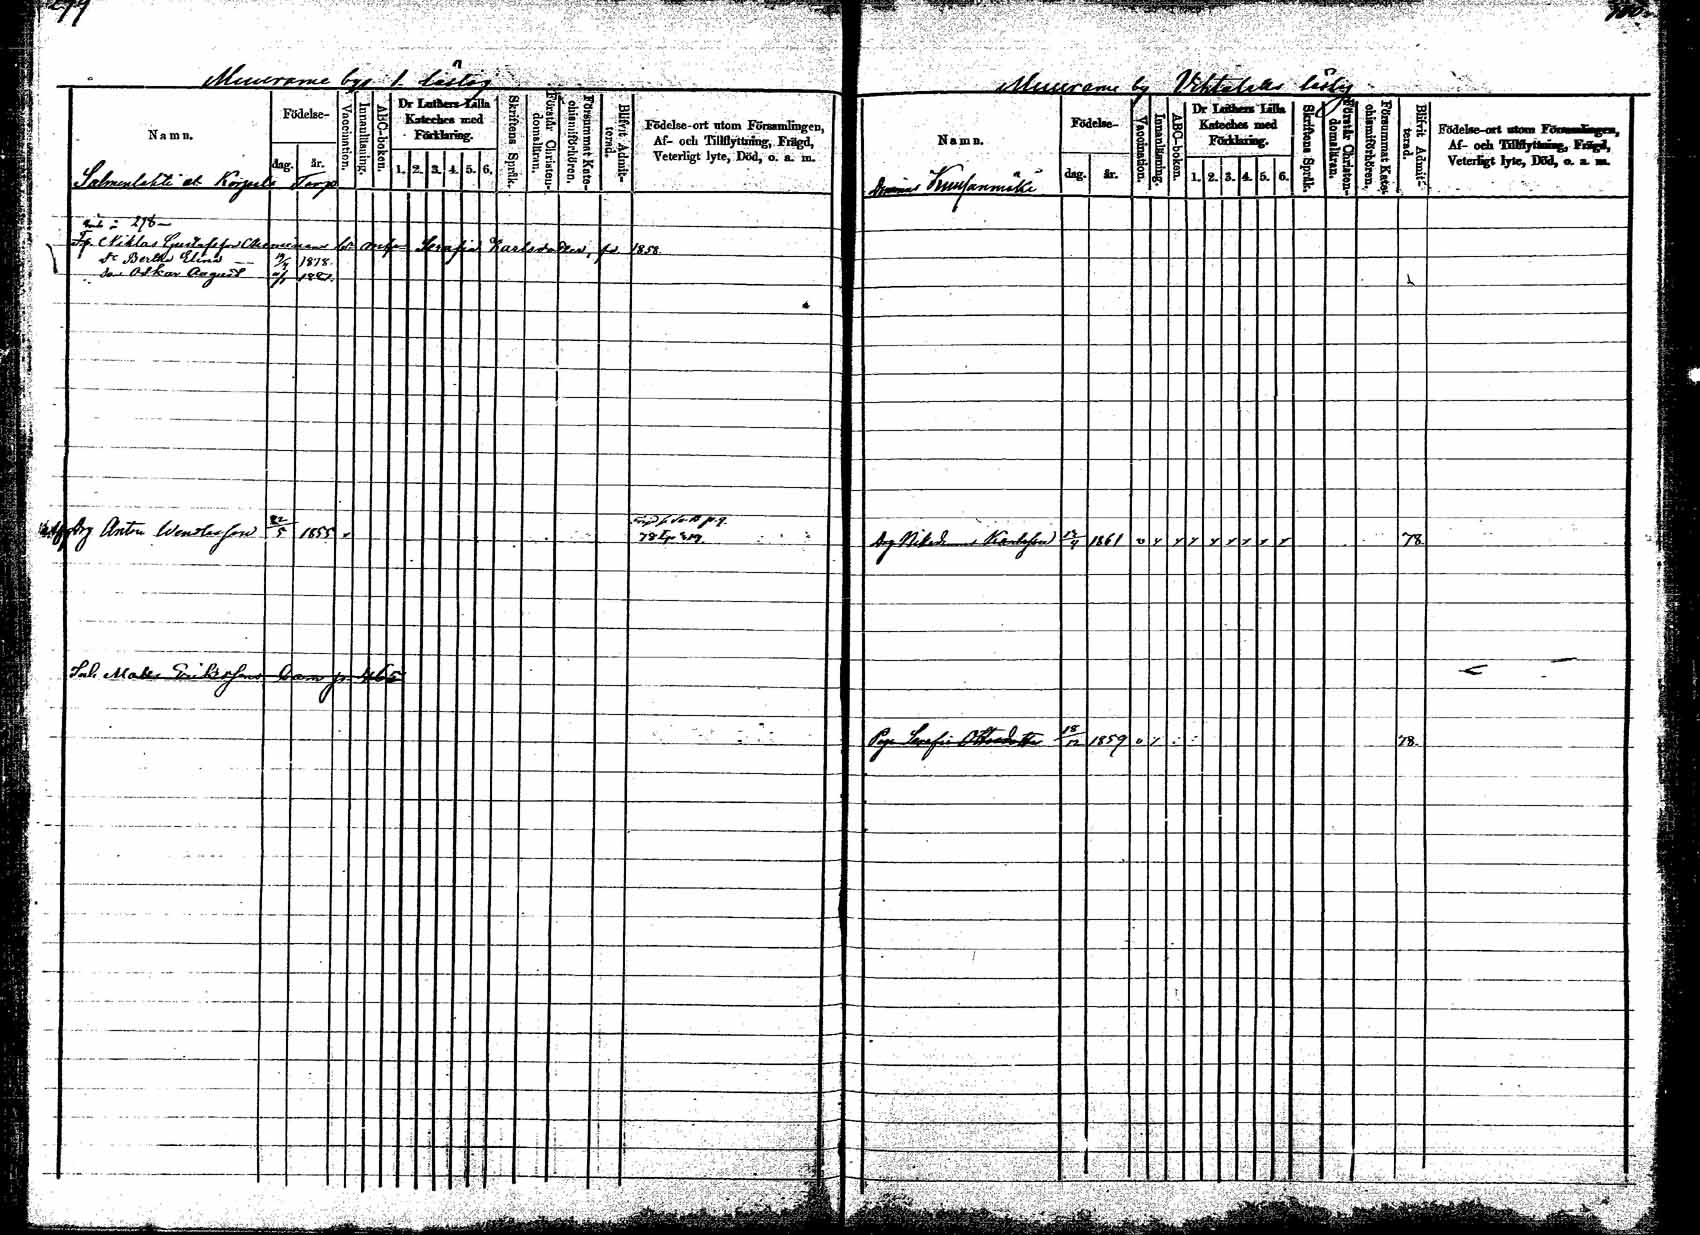 299
Muurame by 1. läslag
Namn.
Födelse-
dag. år.
Vaccination.
Innanläsning.
ABC-boken.
Dr Luthers Lilla Kateches med Förklaring.
1. 2. 3. 4. 5. 6.
Skriftens Språk.
Förstår Christendomsläran.
Försummat Katechismiförhören.
Blifvit Admitterad.
Födelse-ort utom Församlingen,
Af- och Tillflyttning, Frägd,
Veterligt lyte, Död, o. a. m.
Salmenlahti et Torp
278
Tp. Niklas Gustafsson Serafia Karlsdotter, fd. 1858.
Dr Bertha Elina 1878.
Son Oskar August
Drg Anton Wendelsson 22/5 1855
78
Mats Eriksson barn p. 465
Muurame by läslag
Namn.
Födelse-
dag. år.
Vaccination.
Innanläsning.
ABC-boken.
Dr Luthers Lilla Kateches med Förklaring.
1. 2. 3. 4. 5. 6.
Skriftens Språk.
Förstår Christendomsläran.
Försummat Katechismiförhören.
Blifvit Admitterad.
Födelse-ort utom Församlingen,
Af- och Tillflyttning, Frägd,
Veterligt lyte, Död, o. a. m.
Drg Nikodemus Karlsson 1861 78
Pig. Serafia Ottosdotter 18/12 1859 78.